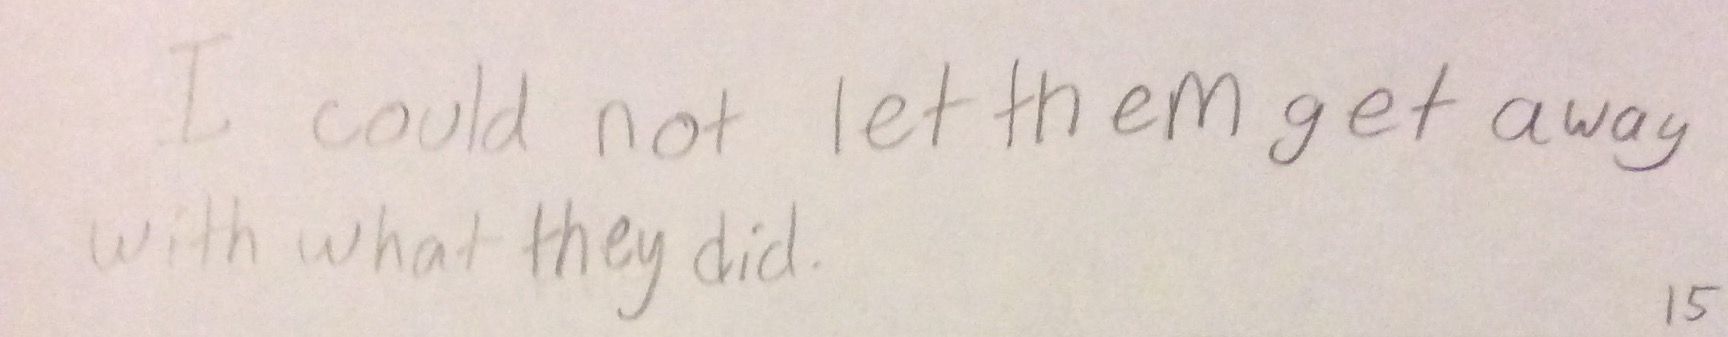 I could not let them get away
with what they did.
15